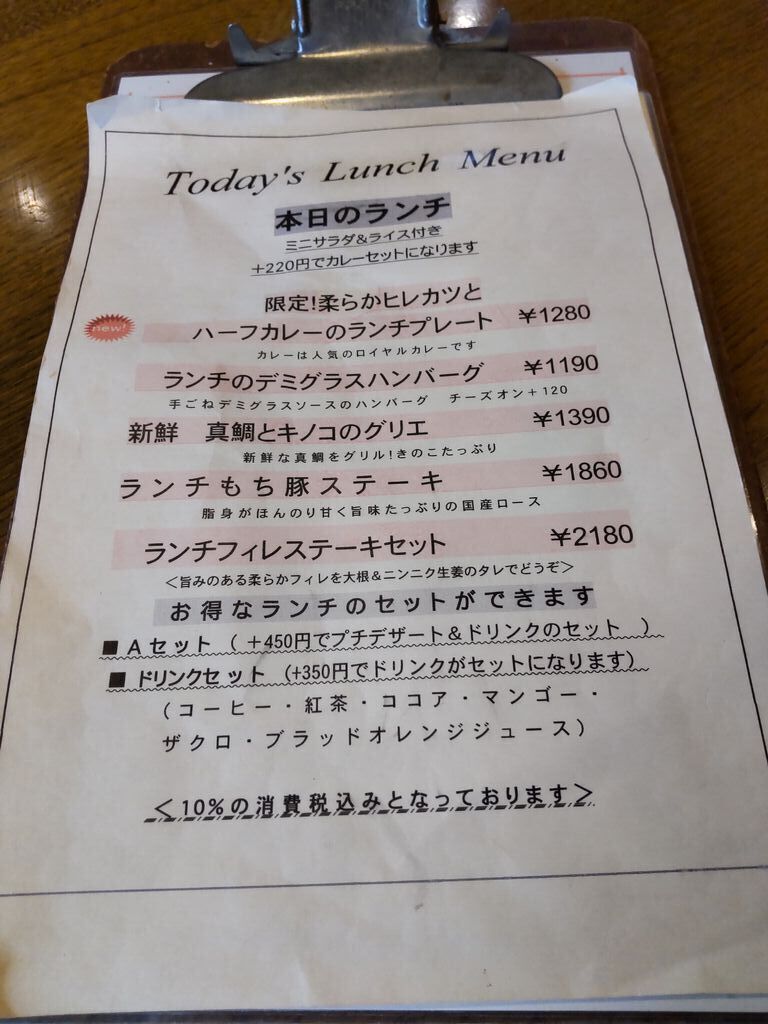 Today's Lunch Menu
本日のランチ
ミニサラダ&ライス付き
+220円でカレーセットになります
限定!柔らかヒレカツと
new!
ハーフカレーのランチプレート ¥1280
カレーは人気のロイヤルカレーです
ランチのデミグラスハンバーグ ¥1190
手ごねデミグラスソースのハンバーグ チーズオン+120
新鮮 真鯛とキノコのグリエ ¥1390
新鮮な真鯛をグリル!きのこたっぷり
ランチもち豚ステーキ ¥1860
脂身がほんのり甘く旨味たっぷりの国産ロース
ランチフィレステーキセット ¥2180
<旨みのある柔らかフィレを大根&ニンニク生姜のタレでどうぞ>
お得なランチのセットができます
■ Aセット (+450円でプチデザート&ドリンクのセット )
■ ドリンクセット (+350円でドリンクがセットになります)
(コーヒー・紅茶・ココア・マンゴー・
ザクロ・ブラッドオレンジジュース)
<10%の消費税込みとなっております>